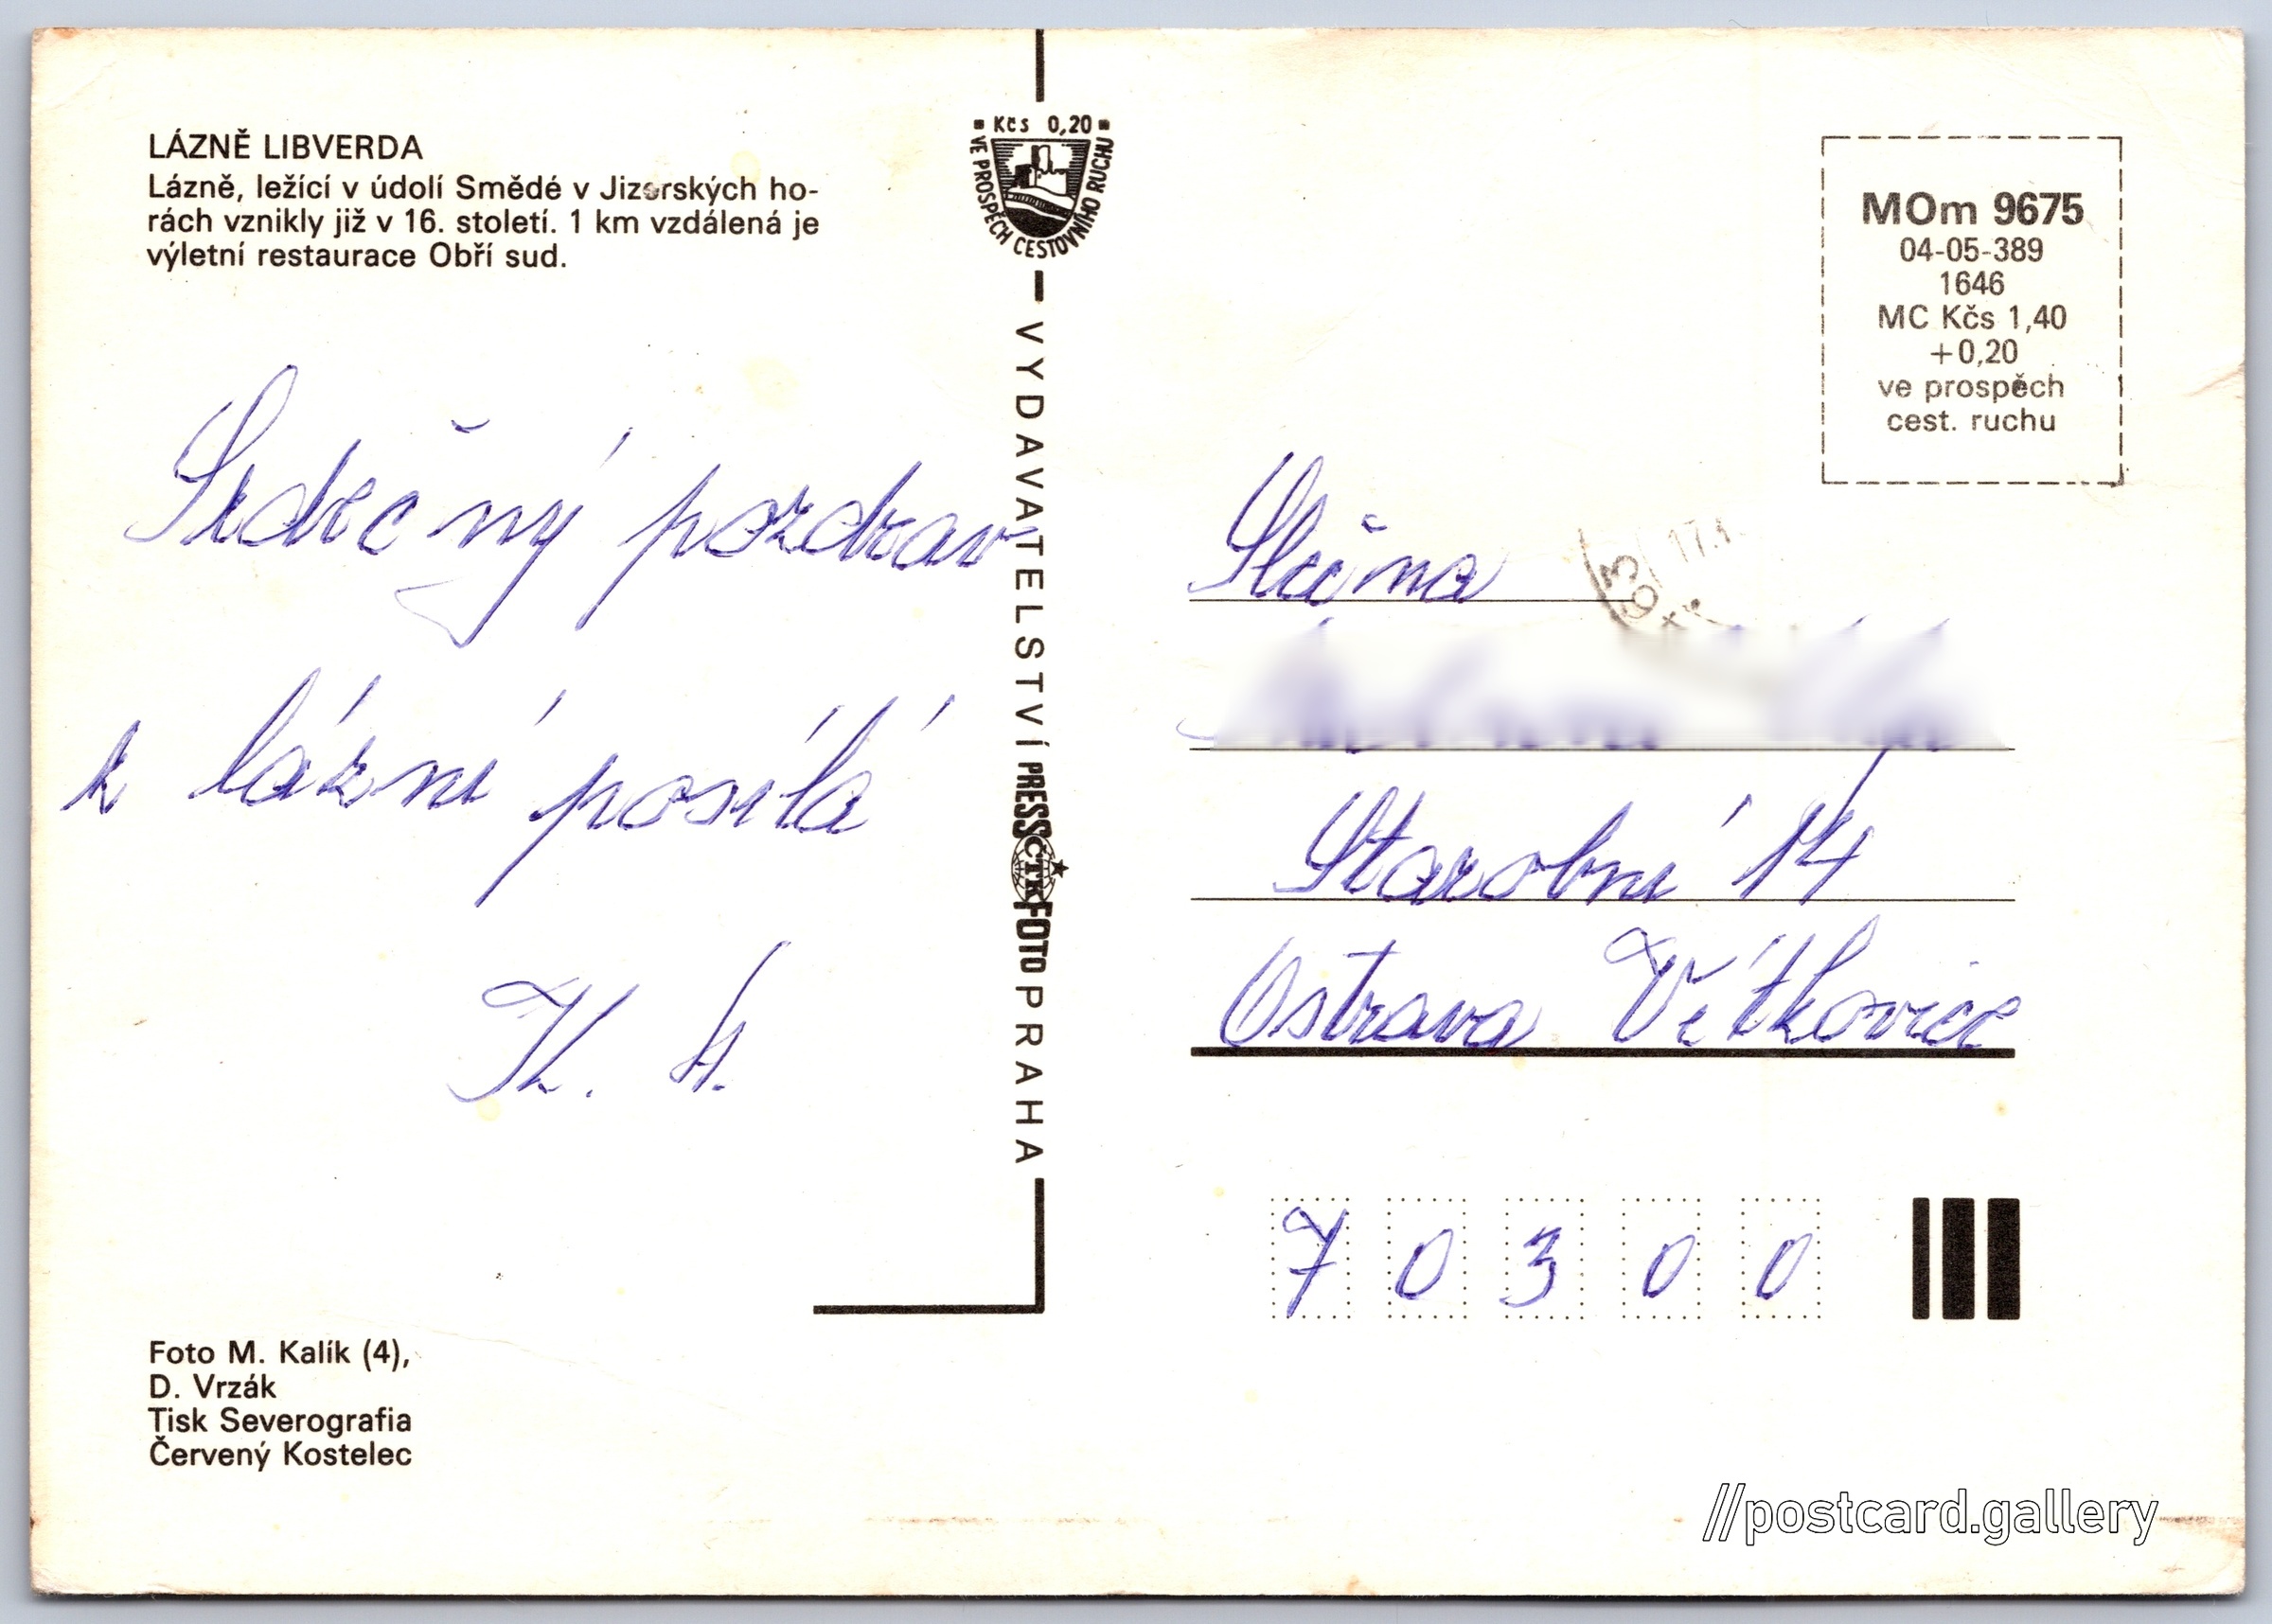 LÁZNĚ LIBVERDA
Lázně, ležící v údolí Smědé v Jizerských ho-
rách vznikly již v 16. století. 1 km vzdálená je
výletní restaurace Obří sud.
Srdečný pozdrav
z lázní posílá
K. H.
Foto M. Kalík (4),
D. Vrzák
Tisk Severografia
Červený Kostelec
Kčs 0,20
VE PROSPĚCH CESTOVNÍHO RUCHU
VYDAVATELSTVÍ PRESSFOTO PRAHA
ČTK
MOm 9675
04-05-389
1646
MC Kčs 1,40
+0,20
ve prospěch
cest. ruchu
17.
Slečna
14
Ostrava Vítkovice
70300
//postcard.gallery